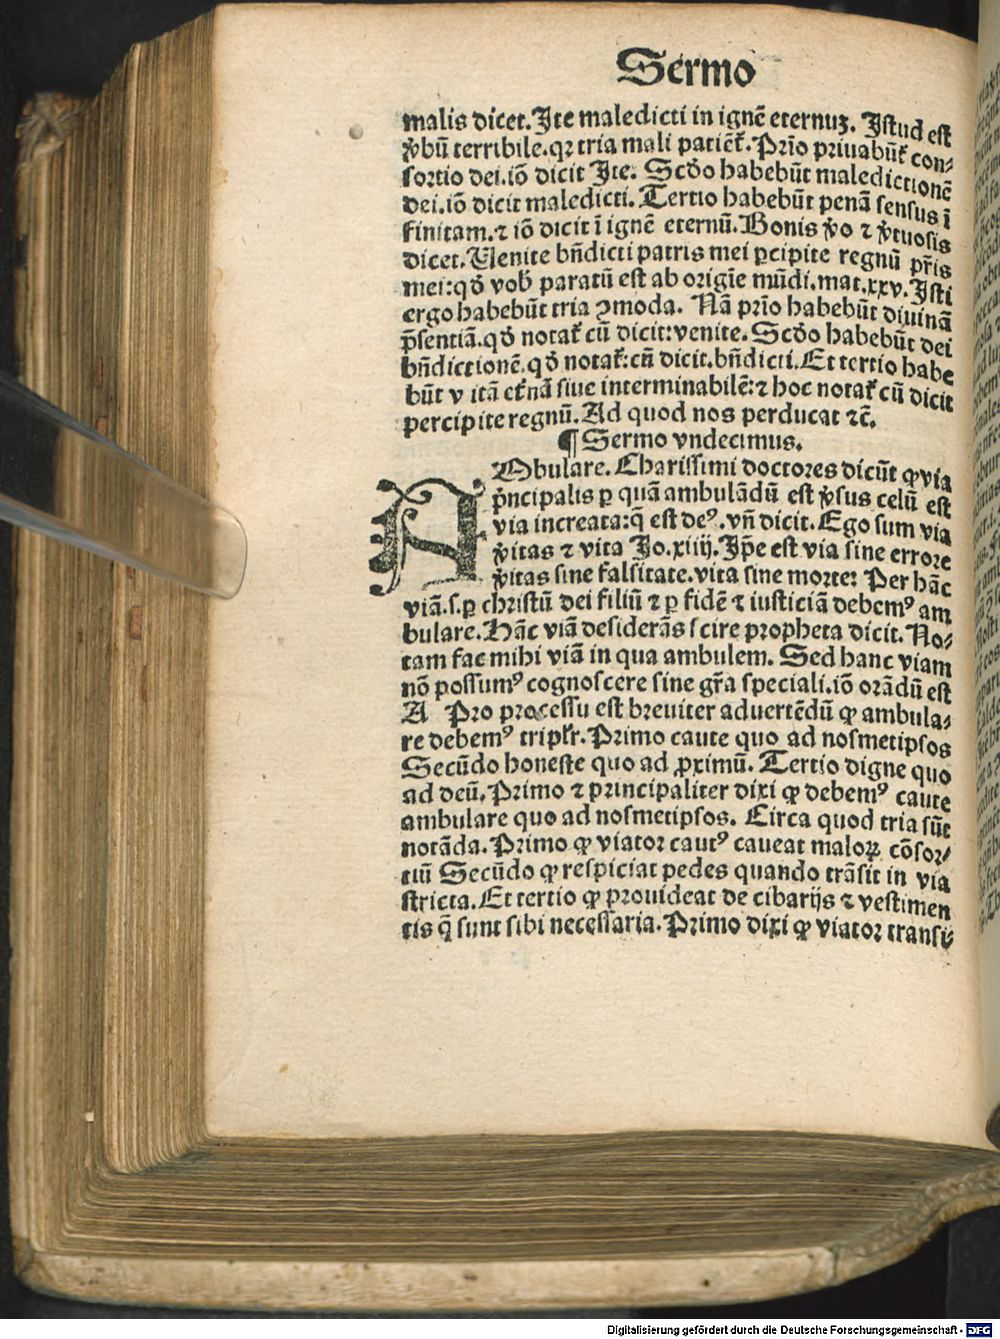 Sermo
malis dicet. Ite maledicti in ignē eternuꝫ. Istud est
v̾bū terribile.qꝛ tria mali patiēt᷑. Prīo priuabūt᷑ con⸗
sortio dei.iō dicit Ite. Scḋo habebūt maledictionē
dei.iō dicit maledicti. Tertio habebūt penā sensus ī
finitam.⁊ iō dicit ī ignē eternū. Bonis v̾o ⁊ v̾tuosis
dicet. Uenite bn̄dicti patris mei ꝑcipite regnū pr̄is
mei:qḋ vob̾ paratū est ab origīe mūdi.mat.xxv. Isti
ergo habebūt tria ꝯmoda. Nā prīo habebūt diuinā
p̄sentiā.qḋ notat᷑ cū dicit:venite. Scḋo habebūt dei
bn̄dictionē.qḋ notat᷑:cū dicit.bn̄dicti. Et tertio habe
būt vitā et᷑nā siue interminabilē:⁊ hoc notat᷑ cū dicit
percipite regnū. Ad quod nos perducat ⁊c̄.
¶ Sermo vndecimus.
AMbulare. Charissimi doctores dicūt ꝙ via
p̄ncipalis ꝑ quā ambulādū est v̾sus celū est
via increata:q̄ est deꝰ.vn̄ dicit. Ego sum via
v̾itas ⁊ vita Jo.xiiij. Ip̄e est via sine errore
v̾itas sine falsitate.vita sine morte: Per hāc
viā.s.ꝑ christū dei filiū ⁊ ꝑ fidē ⁊ iusticiā debemꝰ am
bulare. Hāc viā desiderās scire propheta dicit. No⸗
tam fac mihi viā in qua ambulem. Sed hanc viam
nō possumꝰ cognoscere sine gr̄a speciali.iō orādū est
A Pro processu est breuiter aduertēdū ꝙ ambula⸗
re debemꝰ tripl᷑r. Primo caute quo ad nosmetipsos
Secūdo honeste quo ad ꝓximū. Tertio digne quo
ad deū. Primo ⁊ principaliter dixi ꝙ debemꝰ caute
ambulare quo ad nosmetipsos. Circa quod tria sūt
notāda. Primo ꝙ viator cautꝰ caueat maloꝝ cōsor⸗
tiū Secūdo ꝙ respiciat pedes quando trāsit in via
stricta. Et tertio ꝙ prouideat de cibarijs ⁊ vestimen
tis q̄ sunt sibi necessaria. Primo dixi ꝙ viator transi⸗
Digitalisierung gefördert durch die Deutsche Forschungsgemeinschaft - DFG